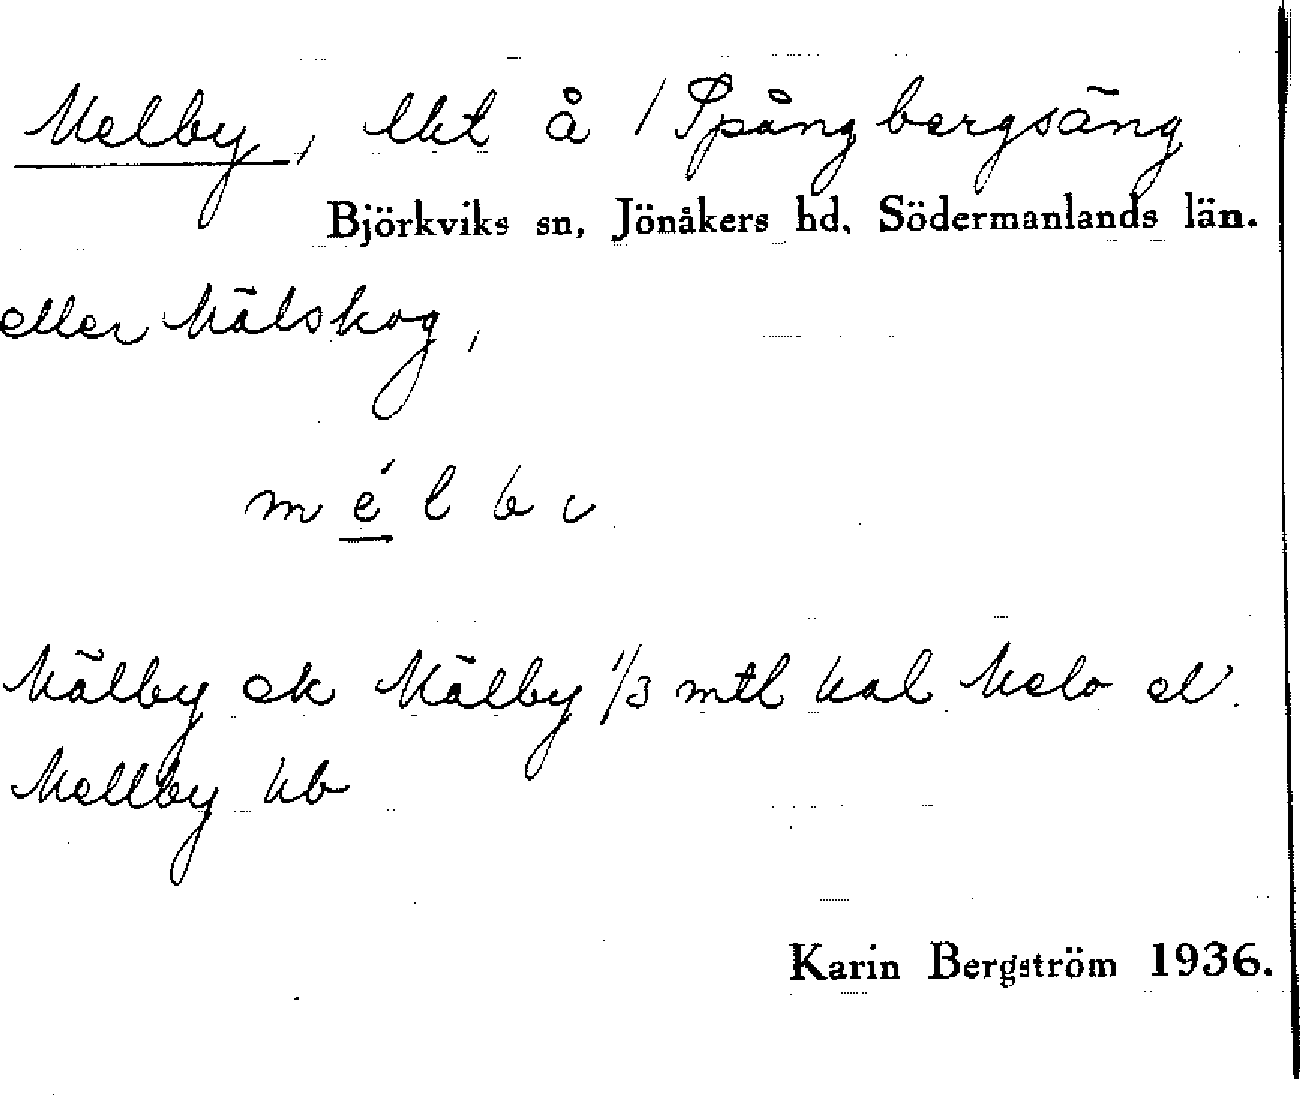 Melby, lht å 1 Spångbergsäng
Björkviks sn, Jönåkers hd, Södermanlands län.
eller Mälskog,
m é l b ι
Mälby ek Mälby 1/3 mtl hal Melo el.
Mellby hb
Karin Bergström 1936.